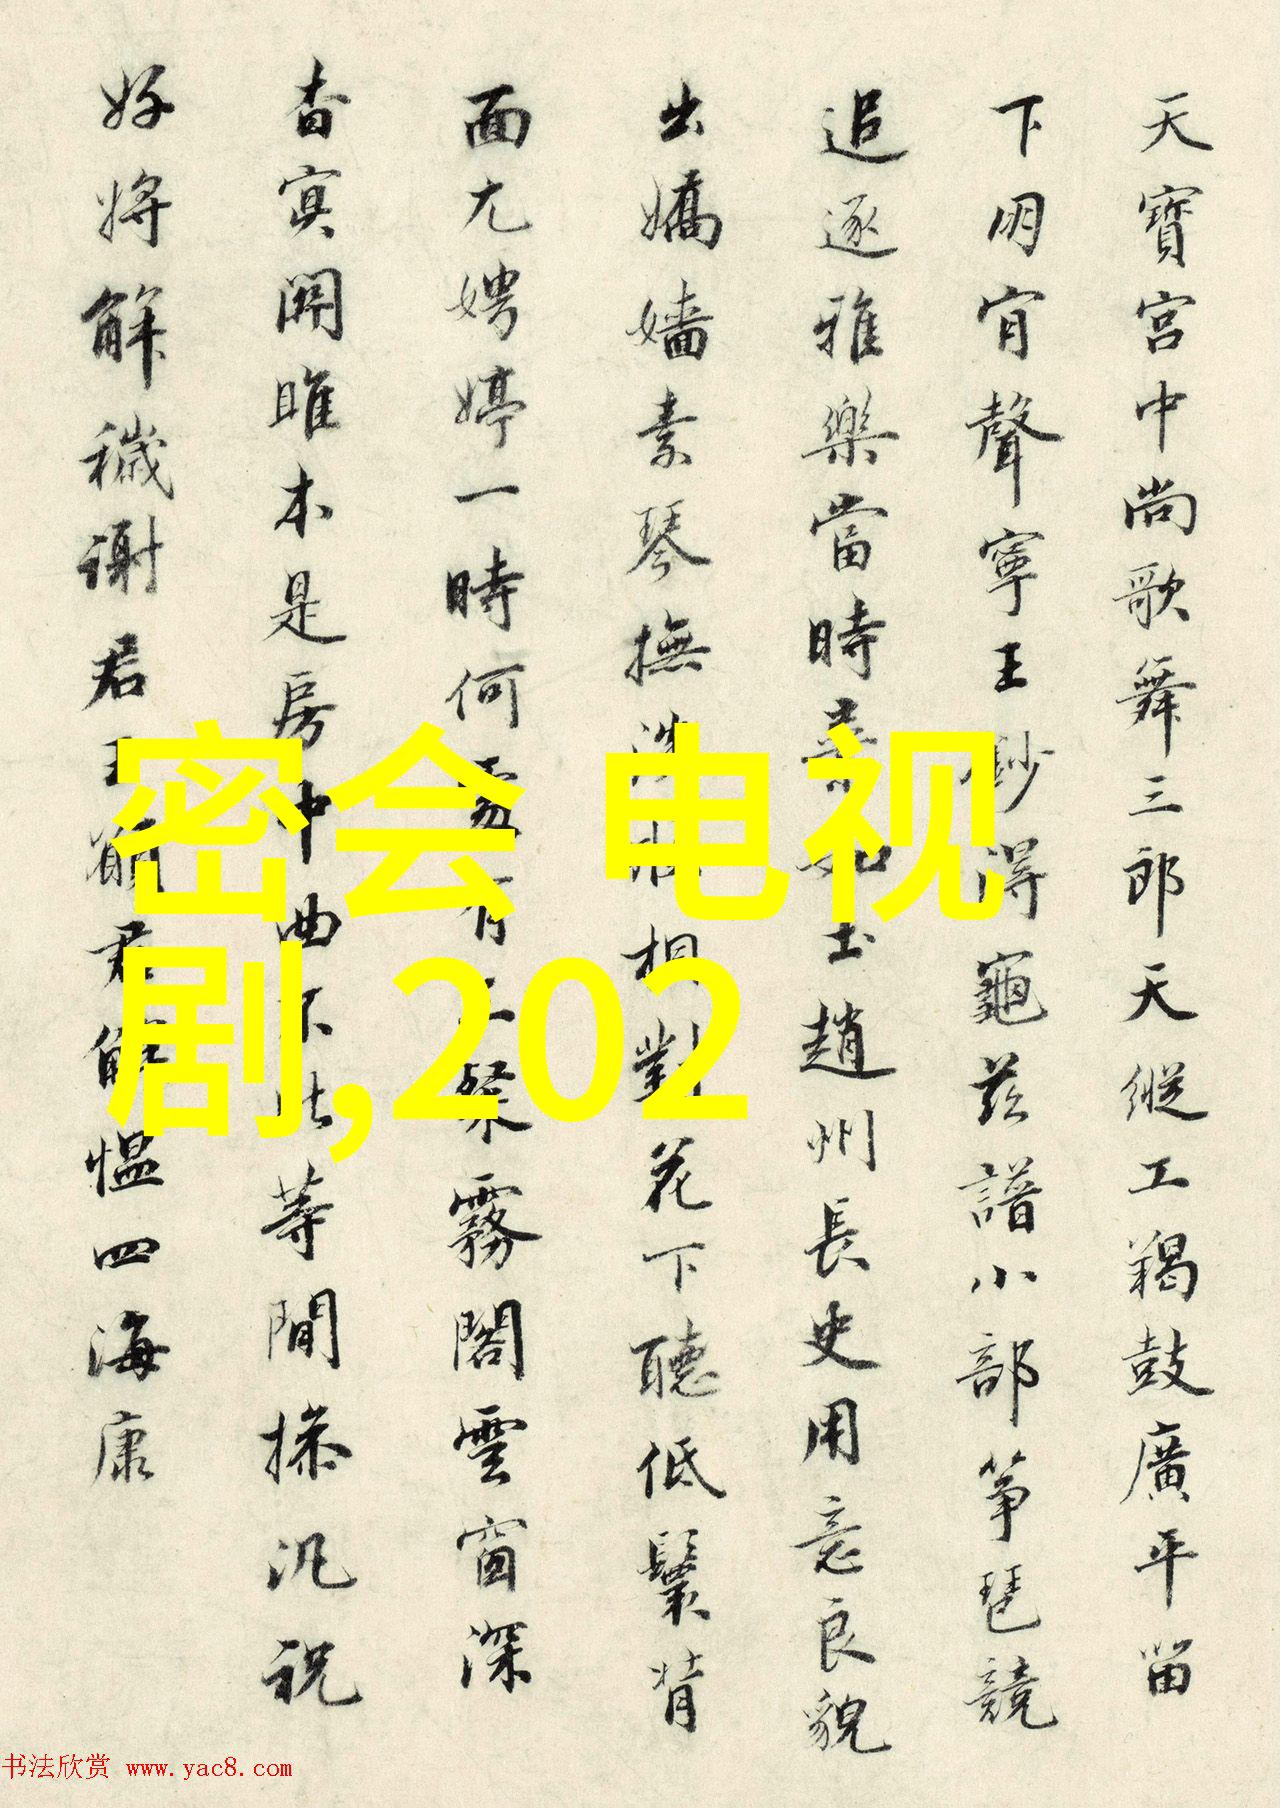 天寶宮中尚歌舞三郎天縱工羯鼓廣平笛
下明宵聲寧王 得龜茲譜小部筝琶競
追逐雅樂當時 士趙州長史用意良貌
出嬌嬙素琴撫 相對花下聽低鬟背
面尤娉婷一時何處有 霧閣雲窗深
杳冥關雎本是房中曲不比等閒操沉祝
好將解穢謝君王 君解慍四海康
密会 电视
剧,202
书法欣赏 www.yac8.com